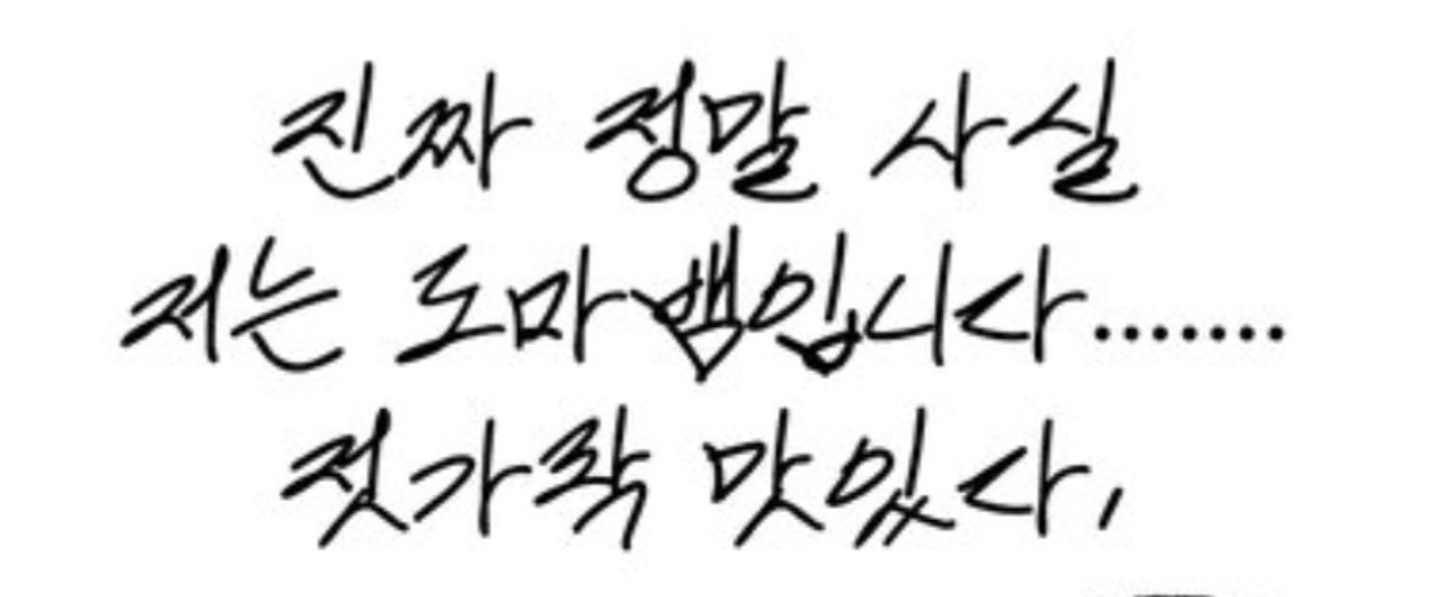 진짜 정말 사실
저는 도마뱀입니다.......
젓가락 맛있다,